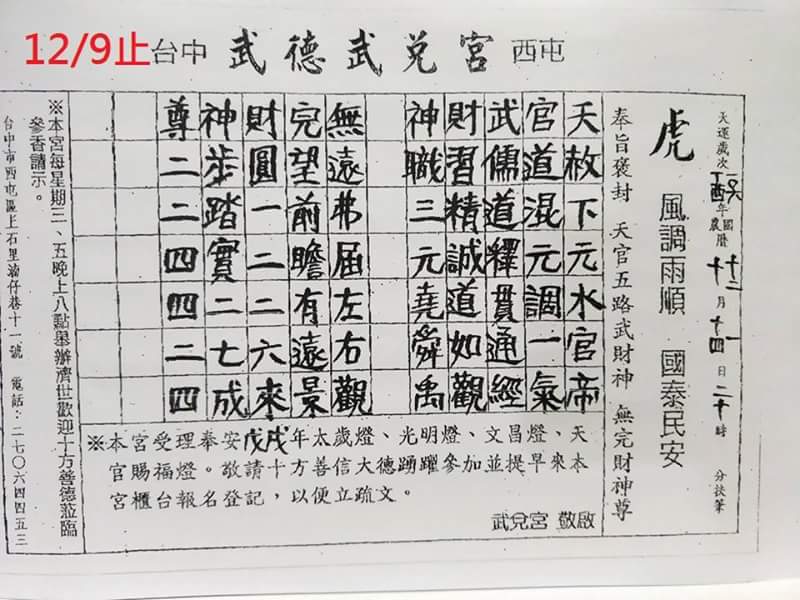 12/9止 台中 武德武兌宮 西屯
天運歲次丁酉年 國曆 十二 月 一 日 二十時 分扶筆
農曆 十 月 十四
虎 風調雨順 國泰民安
奉旨褒封 天官五路武財神 無完財神尊
天赦下元水官帝
官道混元調一氣
武儒道釋貫通經
財習精誠道如觀
神職三元堯舜禹
無遠弗届左右觀
完望前瞻有遠景
財圓一二二六來
神步踏實二七成
尊二二四四二四
※本宮受理奉安戊戌年太歲燈、光明燈、文昌燈、天
官賜福燈。敬請十方善信大德踴躍參加並提早來本
宮櫃台報名登記，以便立疏文。
武兌宮 敬啟
※本宮每星期三、五晚上八點舉辦濟世歡迎十方善德蒞臨
參香請示。
台中市西屯區上石里湳仔巷十一號 電話：二七〇六四四五三